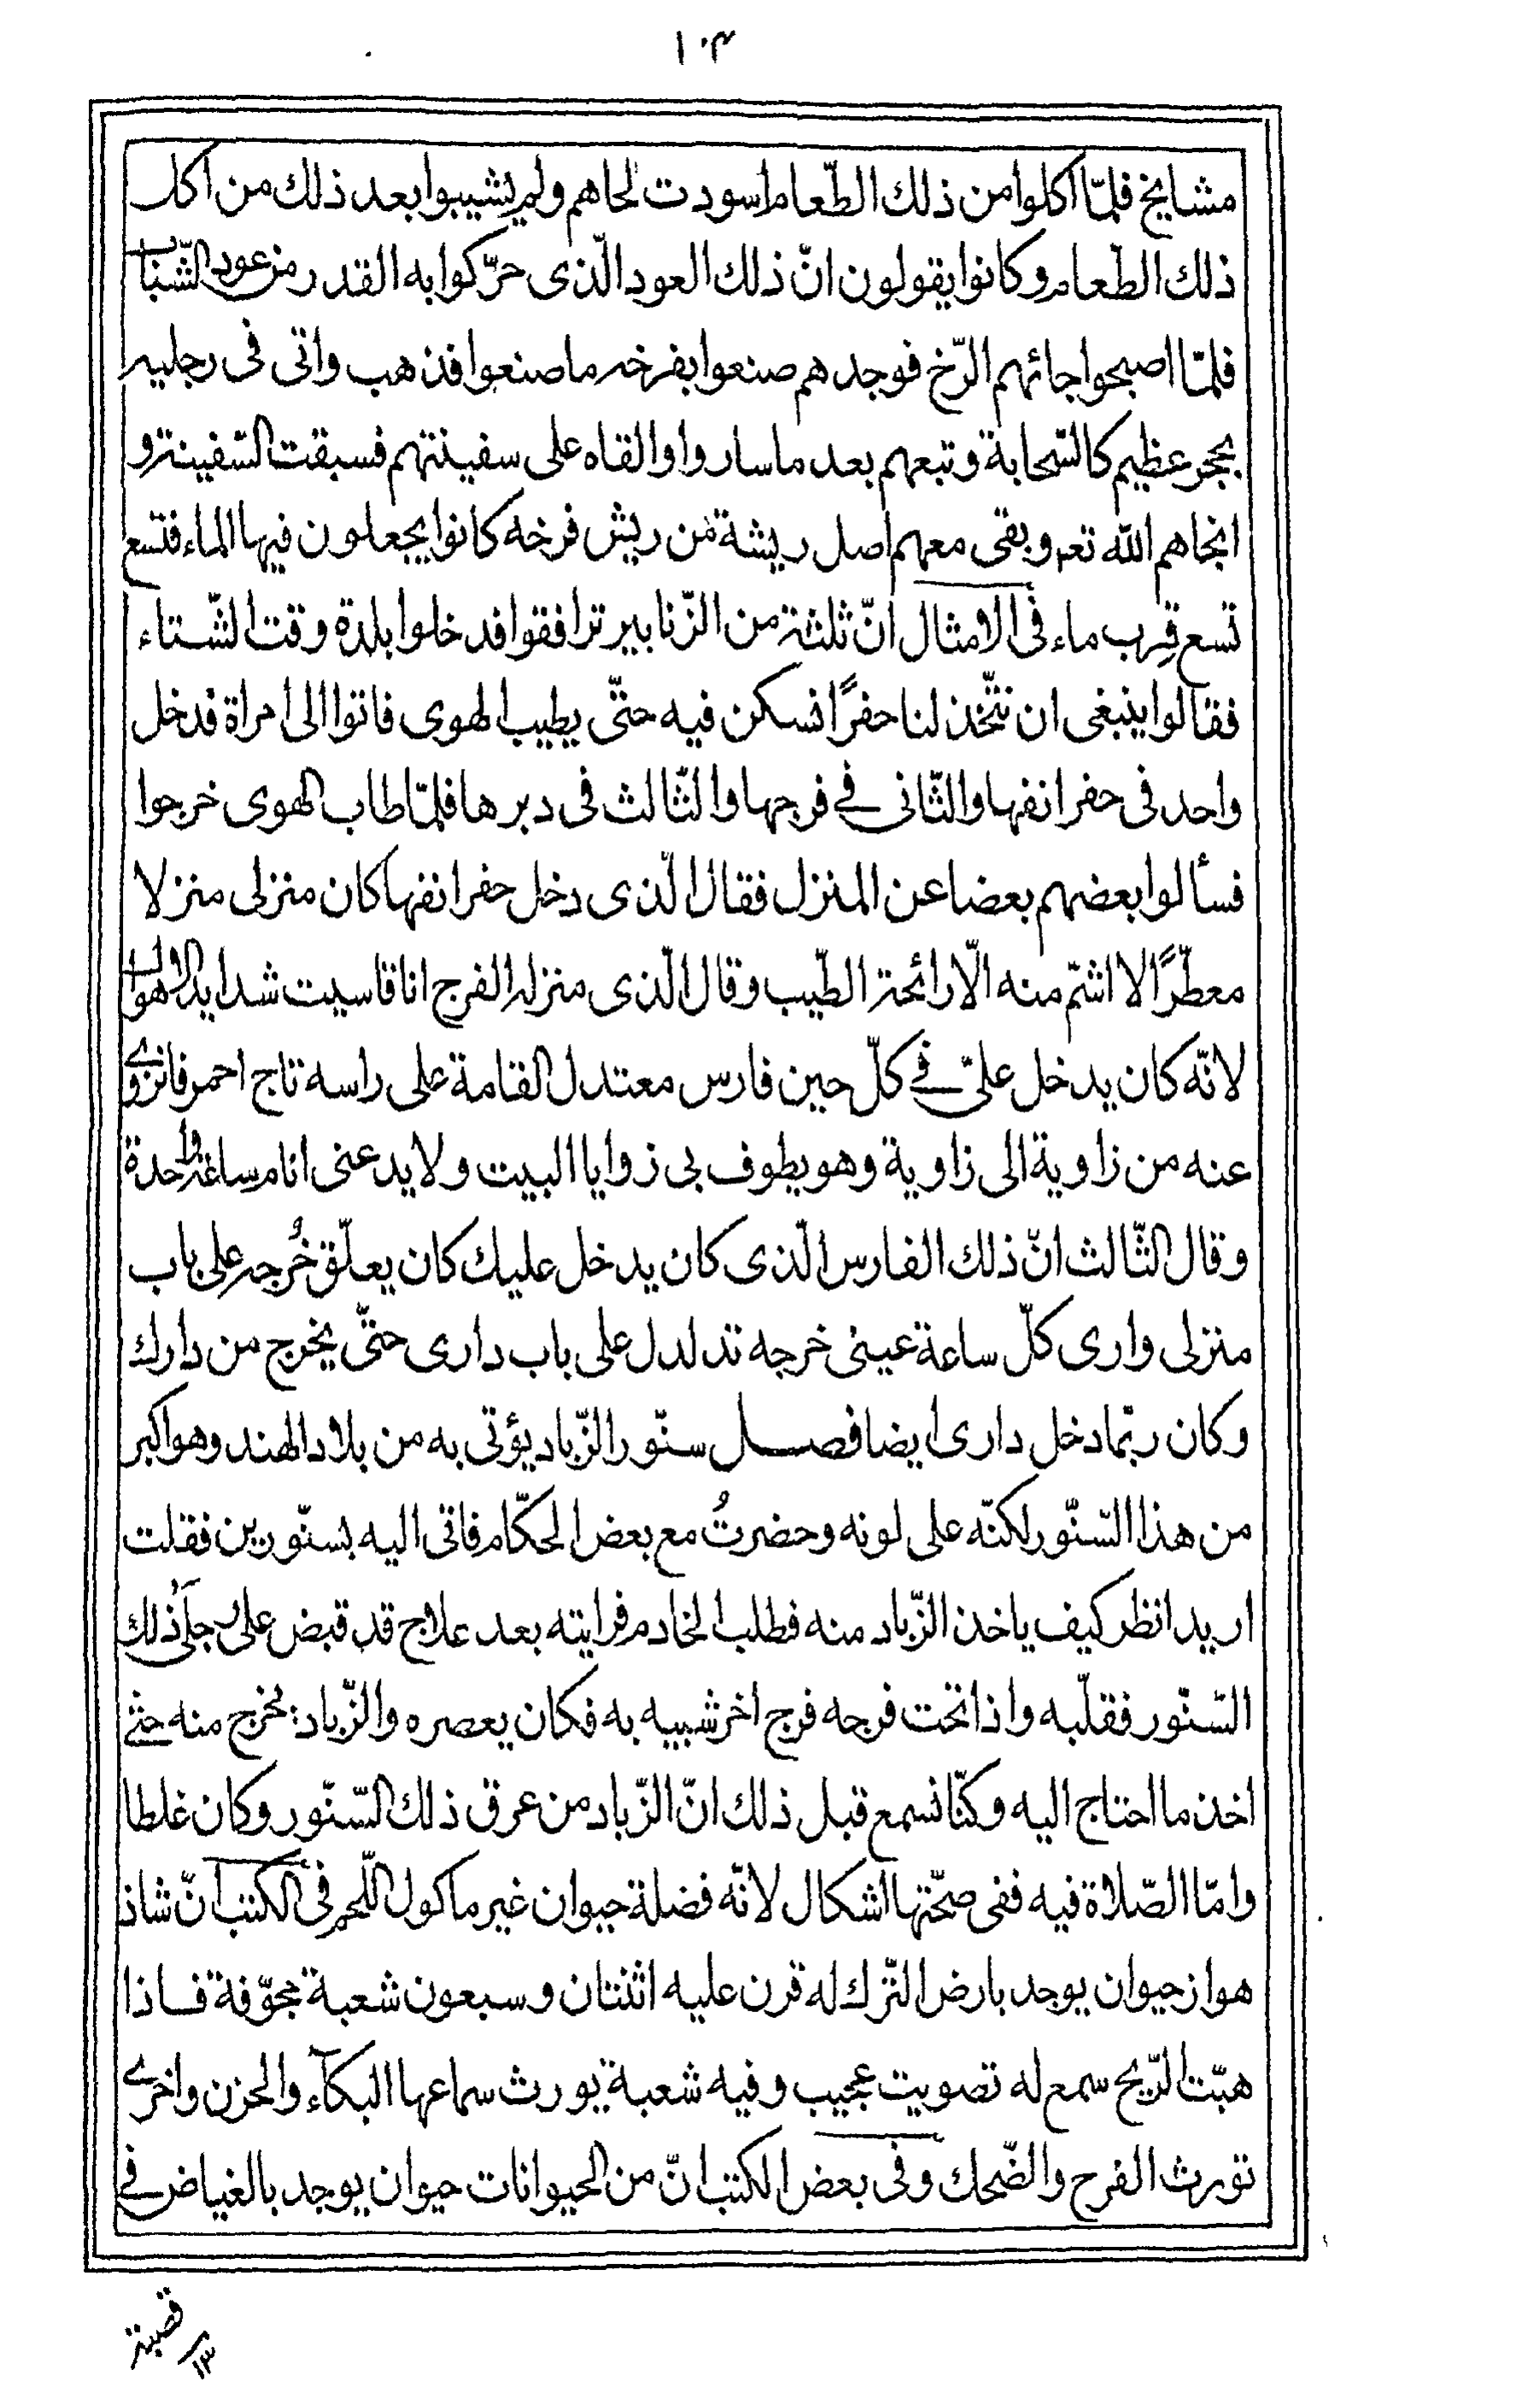 ١٠٣
مشايخ فلمّا اكلوا من ذلك الطّعام اسودت لحاهم ولم يشيبوا بعد ذلك من اكل
ذلك الطّعام وكانوا يقولون انّ ذلك العود الّذى حرّكوا به القدر من عود الشّباب
فلمّا اصبحوا جائهم الرّخ فوجدهم صنعوا بفرخه ما صنعوا فذهب واتى فى رجليه
بحجر عظيم كالسّحابة وتبعهم بعد ما ساروا والقاه على سفينتهم فسبقت السّفينة و
انجاهم الله تعه وبقى معهم اصل ريشة من ريش فرخه كانوا يجعلون فيها الماء فتسع
تسع قِرب ماء فى الامثال انّ ثلثة من الزّنابير ترافقوا فدخلوا بلدة وقت الشّتاء
فقالوا ينبغى ان نتّخذ لنا حفرًا نسكن فيه حتّى يطيب الهوى فاتوا الى امراة فدخل
واحد فى حفر انفها والثّانى فى فرجها والثّالث فى دبرها فلمّا طاب الهوى خرجوا
فسألوا بعضهم بعضا عن المنزل فقال الّذى دخل حفر انفها كان منزلى منزلا
معطّرًا لا اشمّ منه الّا رائحة الطّيب وقال الّذى منزله الفرج انا قاسيت شدايد الاهوال
لانّه كان يدخل علىّ فى كلّ حين فارس معتدل القامة على راسه تاج احمر فانزوى
عنه من زاوية الى زاوية وهو يطوف بى زوايا البيت ولا يدعنى انام ساعة واحدة
وقال الثّالث انّ ذلك الفارس الّذى كان يدخل عليك كان يعلّق خُرجه على باب
منزلى وارى كلّ ساعة عينى خرجه تدلدل على باب دارى حتّى يخرج من دارك
وكان ربّما دخل دارى ايضا فصل سنّور الزّباد يؤتى به من بلاد الهند وهو اكبر
من هذا السّنّور لكنّه على لونه وحضرتُ مع بعض الحكّام فاتى اليه بسنّورين فقلت
اريد انظر كيف ياخذ الزّباد منه فطلب الخادم فرايته بعد علاج قد قبض على رجلى ذلك
السّنّور فقلّبه واذا تحت فرجه فرج اخر شبيه به فكان يعصره والزّباد يخرج منه حتى
اخذ ما احتاج اليه وكنّا نسمع قبل ذلك انّ الزّباد من عرق ذلك السّنّور وكان غلطا
وامّا الصّلاة فيه ففى صحّتها اشكال لانّه فضلة حيوان غير ماكول اللّحم فى الكتب انّ شاذ
هواز حيوان يوجد بارض التّرك له قرن عليه اثنتان وسبعون شعبة مجوّفة فاذا
هبّت الرّيح سمع له تصويت عجيب وفيه شعبة يورث سماعها البكآء والحزن واخرى
تورث الفرح والضّحك وفى بعض الكتب انّ من الحيوانات حيوان يوجد بالغياض فى
قصبة
١٣